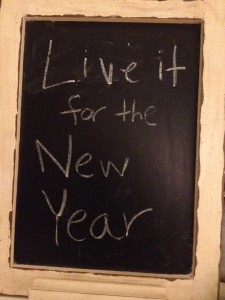 Live it
for the
New
Year